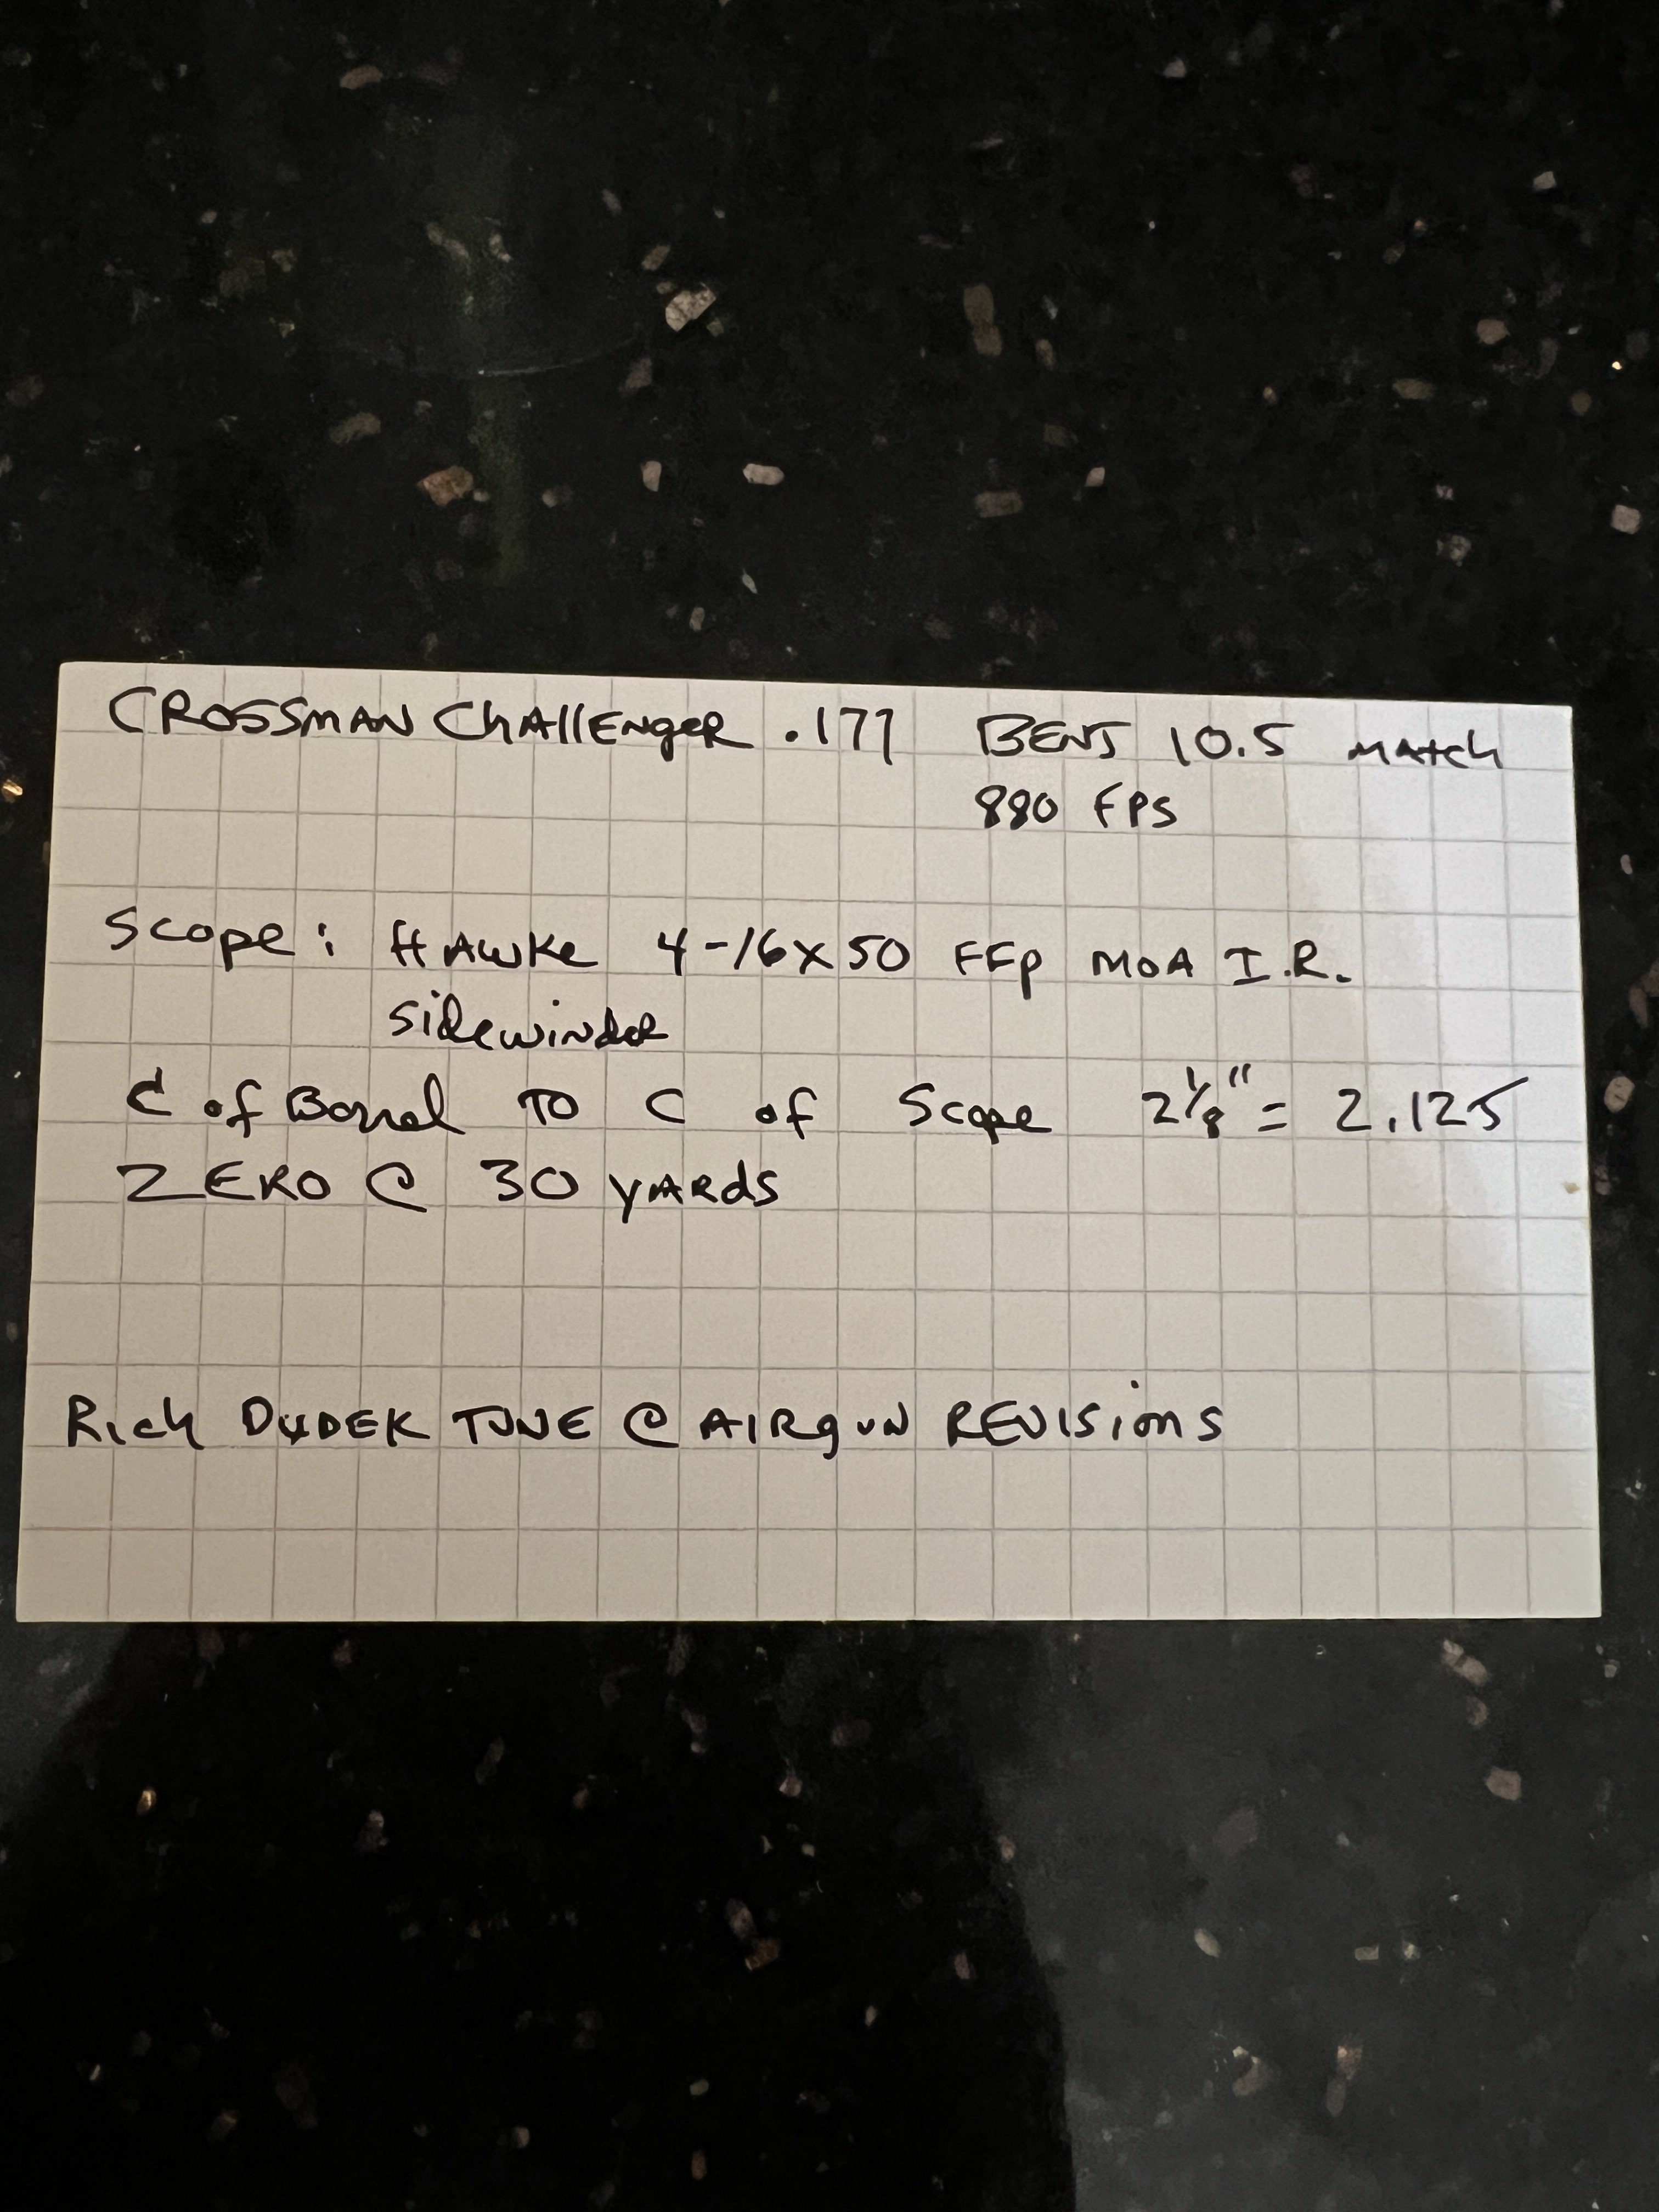 CROSSMAN CHAllENgER .177 BENJ 10.5 MATCH
880 FPS
Scope: HAWKE 4-16x50 FFP MOA I.R.
Sidewinder
C of Barrel TO C of Scope 2 1/8" = 2.125
ZERO @ 30 YARDS
Rich DUDEK TUNE @ AIRgUN REVISIONS